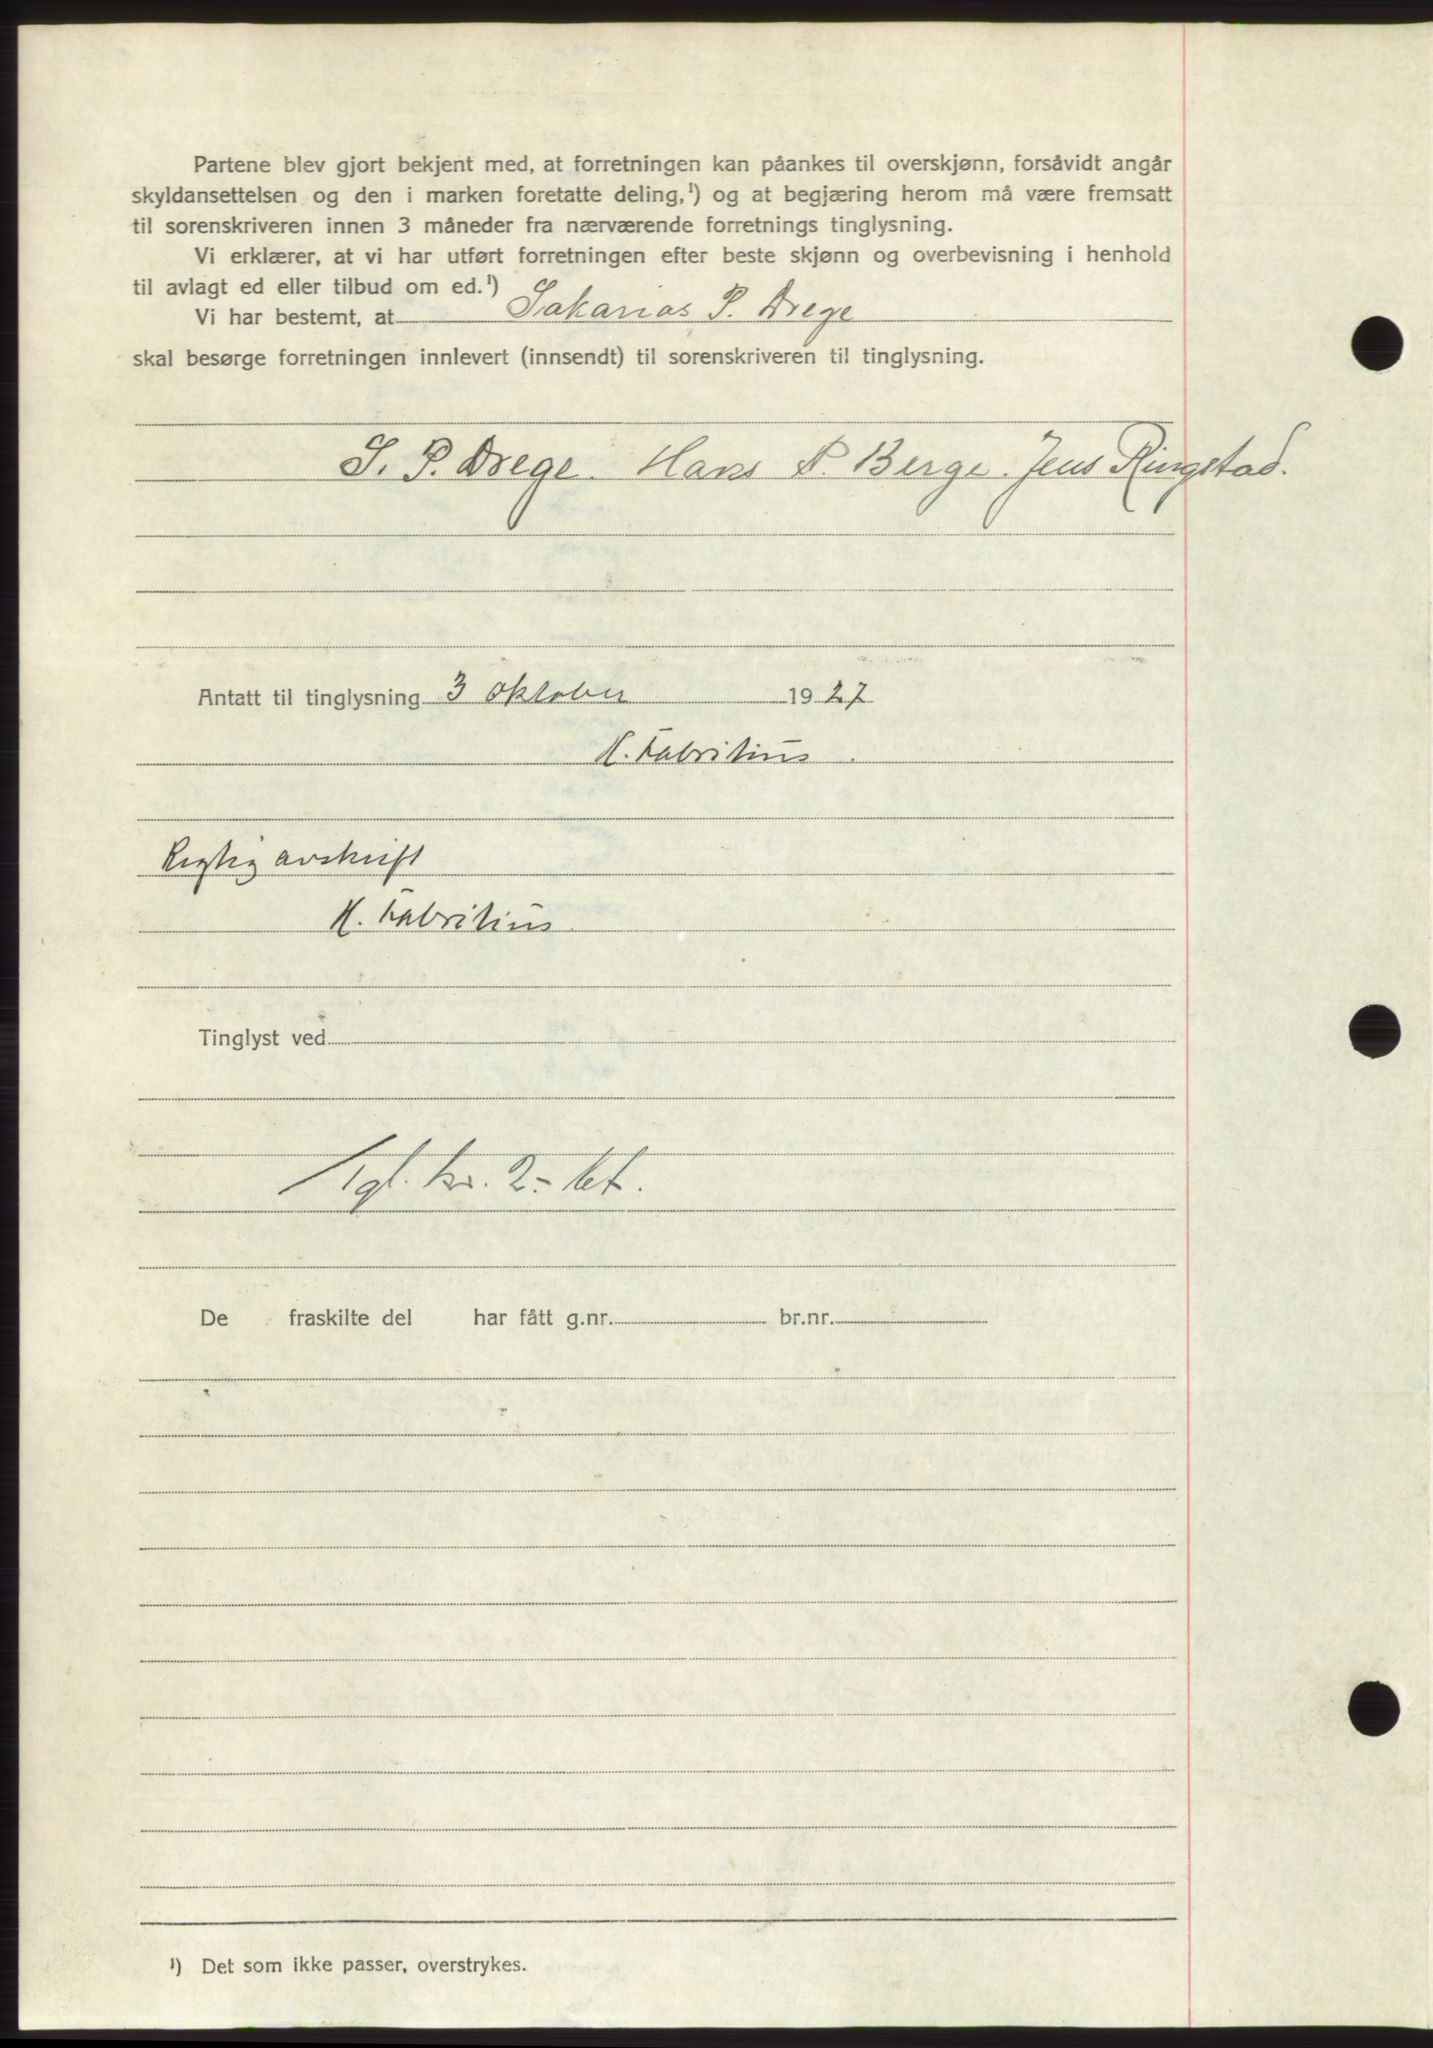 Partene blev gjort bekjent med, at forretningen kan påankes til overskjønn, forsåvidt angår
skyldansettelsen og den i marken foretatte deling,¹) og at begjæring herom må være fremsatt
til sorenskriveren innen 3 måneder fra nærværende forretnings tinglysning.
Vi erklærer, at vi har utført forretningen efter beste skjønn og overbevisning i henhold
til avlagt ed eller tilbud om ed.¹)
Vi har bestemt, at Sakarias P. Drege
skal besørge forretningen innlevert (innsendt) til sorenskriveren til tinglysning.
S. P. Drege. Hans P. Berge. Jens Ringstad.
Antatt til tinglysning 3 oktober 1927
H. Fabritius.
Rigtig avskrift
H. Fabritius.
Tinglyst ved
Tgl. kr. 2.- bet.
De fraskilte del har fått g.nr. br.nr.
¹) Det som ikke passer, overstrykes.